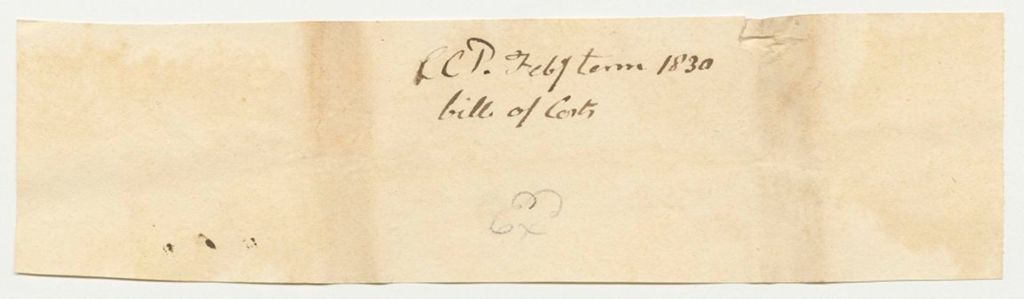 CCP. Feby term 1830
bill of Costs
Ex